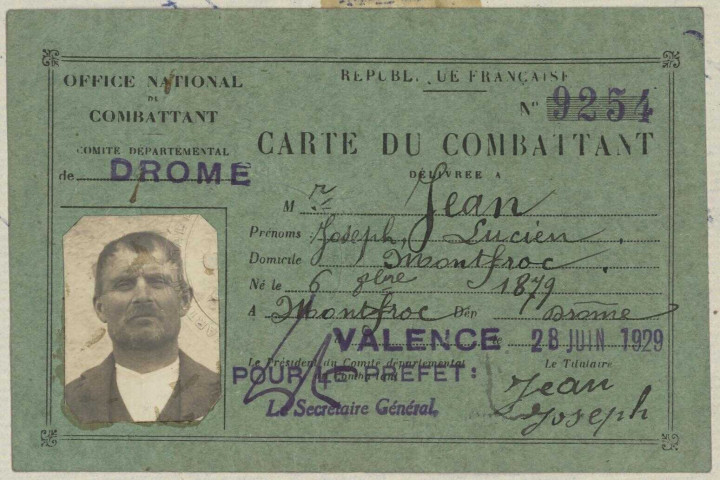 OFFICE NATIONAL
DU
COMBATTANT
COMITÉ DÉPARTEMENTAL
de DROME
RÉPUBLIQUE FRANÇAISE
N° 9254
CARTE DU COMBATTANT
DÉLIVRÉE A
M r Jean
Prénoms : Joseph, Lucien.
Domicile Montfroc.
Né le 6 1879
A Montfroc Dép Drôme
VALENCE le 28 JUIN 1929
Le Président du Comité départemental
du Combattant
Le Titulaire
POUR LE PREFET:
Le Secrétaire Général,
Jean
Joseph